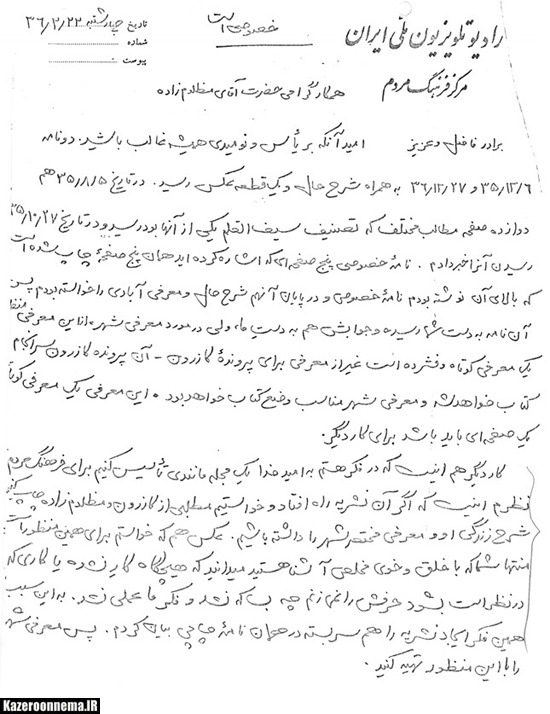 رادیو تلویزیون ملی ایران
مرکز فرهنگ مردم
خصوصی است
تاریخ چهارشنبه ۳۶/۲/۲۲
شماره
پیوست
همکار گرامی حضرت آقای مظلوم زاده
برادر فاضل و عزیز امید آنکه بر یأس و نومیدی همیشه غالب باشید. دو نامه
۳۵/۱۲/۶ و ۳۶/۱۲/۲۷ به همراه شرح حال و یک قطعه عکس رسید. در تاریخ ۳۵/۸/۵ هم
دوازده صفحه مطالب مختلف که تصنیف سیف القلم یکی از آنها بود رسید و در تاریخ ۳۵/۱۰/۲۷
رسیدن آنرا خبر دادم. نامهٔ خصوصی پنج صفحه ای که اشاره کرده اید همان پنج صفحهٔ چاپ شده است
که بالای آن نوشته بودم نامهٔ خصوصی و در پایان آنهم شرح حال و معرفی آبادی را خواسته بودم پس
آن نامه به دست شما رسیده و جوابش هم به دست ما، ولی در مورد معرفی شهر، از این معرفی منظور
یک معرفی کوتاه و فشرده است غیر از معرفی برای پروندهٔ کازرون - آن پرونده کازرون سرانجام
کتاب خواهد شد و معرفی شهر مناسب وضع کتاب خواهد بود. این معرفی یک معرفی کوتاه
یک صفحه ای باید باشد برای کار دیگر.
کار دیگر هم اینست که در فکر هستم به امید خدا یک مجله مانندی تأسیس کنیم برای فرهنگ مردم
نظرم اینست که اگر آن نشریه راه افتاد و خواستیم مطلبی از کازرون و مظلوم زاده چاپ کنیم
شرح زندگی او و معرفی مختصر شهر را داشته باشیم. عکس هم که خواستم برای همین منظور است
منتها شما که با خلق و خوی مخلص آشنا هستید میدانید که هیچگاه کار نشده یا کاری که
در نظر است بشود حرفش را نمی زنم چه بسا که نشد و فکر ما عملی نشد. به این سبب
همین فکر ایجاد نشریه را هم سربسته در همان نامهٔ چاپی بیان کردم. پس معرفی شهر
را با این منظور تهیه کنید.
Kazeroonnema.IR